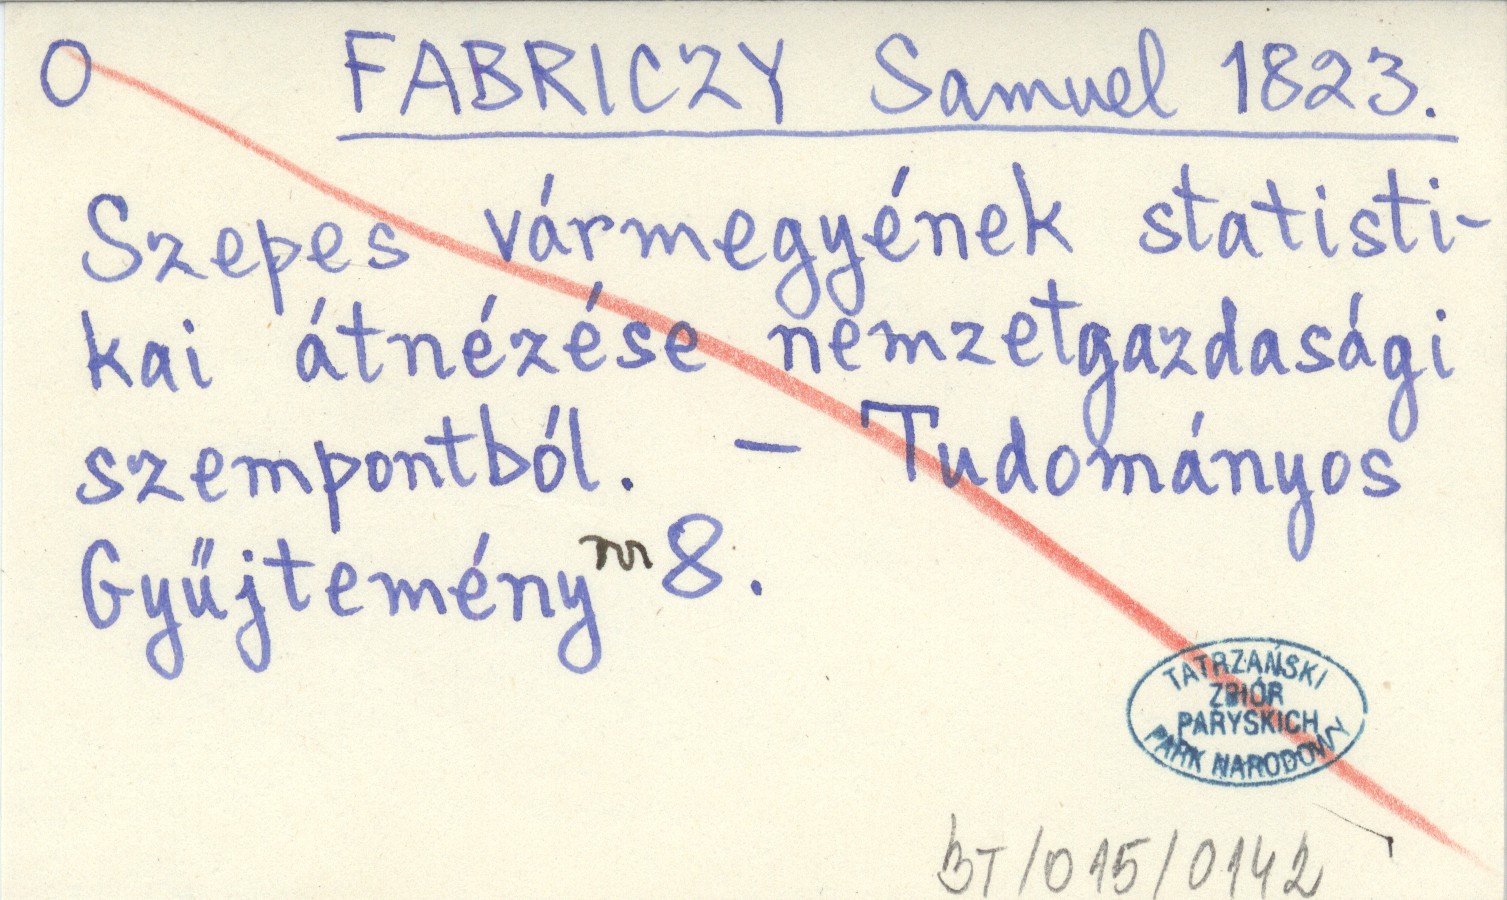 O FABRICZY Samuel 1823.
Szepes vármegyének statisti-
kai átnézése nemzetgazdasági
szempontból. – Tudományos
Gyűjtemény nr 8.
TATRZAŃSKI
ZBIÓR
PARYSKICH
PARK NARODOWY
BT/015/0142